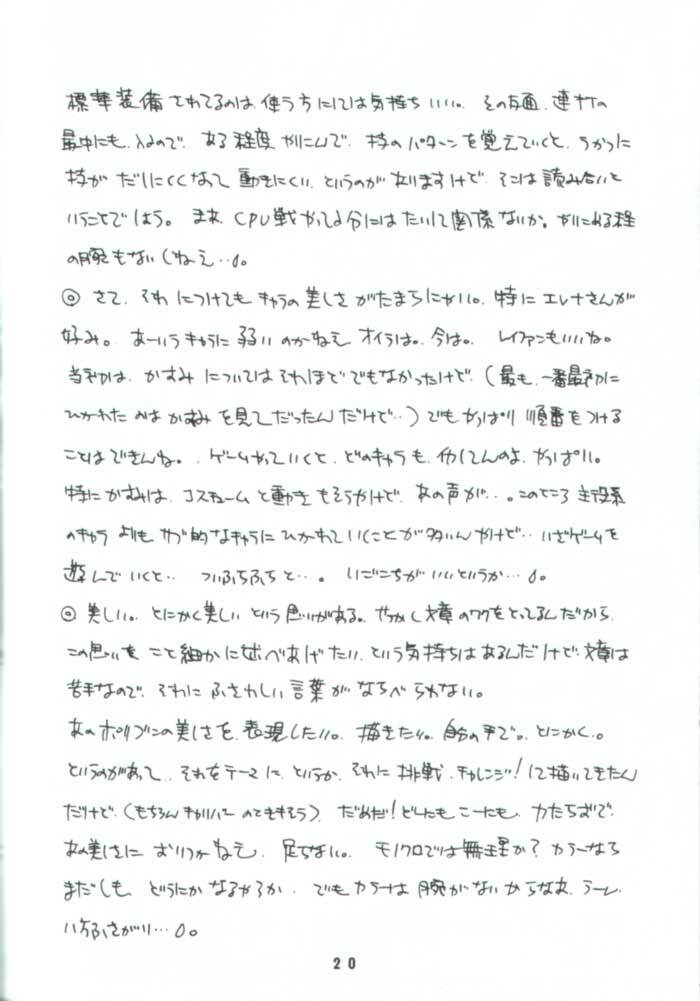 標準装備されてるのは、使う方にしては気持ちいい。その反面、連打の
最中にも、入るので、ある程度やりこんで、技のパターンを覚えていくと、うかつに
技がだしにくくなって動きにくい、というのがありますけど、そこは読み合いと
いうことでしょう。まぁ、CPU戦やってる分にはたいして関係ないか。やりこめる程
の腕もないしねえ…。
◎さて、それにつけてもキャラの美しさがたまらにゃい。特にエレナさんが
好み。あーいうキャラに弱いのかねえオイラは。今は。レイファンもいいね。
当初は、かすみについてはそれほどでもなかったけど、(最も、一番最初に
ひかれたのはかすみを見てだったんだけど…)でもやっぱり順番をつける
ことはできんね。ゲームやっていくと、どのキャラも、イカしてんのよ、やっぱり。
特にかすみは、コスチュームと動きもそうやけど、あの声が…。このところ主役系
のキャラよりも、サブ的なキャラにひかれていくことが多いんやけど…いざゲームを
遊んでいくと…ついふらふらと…。いごこちがいいというか…。
◎美しい。とにかく美しいという思いがある。せっかく文章のワクをとってるんだから、
この思いをこと細かに述べあげたい、という気持ちはあるんだけど、文章は
苦手なので、それにふさわしい言葉がならべられない。
あのポリゴンの美しさを、表現したい。描きたい。自分の手で。とにかく。
というのがあって、それをテーマに、というか、それに挑戦、チャレンジ!して描いてきたん
だけど、(もちろん、)だめだ!どーしたもこーしたも、力たらずで、
あの美しさにおいつかねえ、足らない。モノクロでは無理か?カラーなら
まだしも、どうにかなるやろか、でもカラーは腕がないからなぁ、うーん、
八方ふさがり…。
20